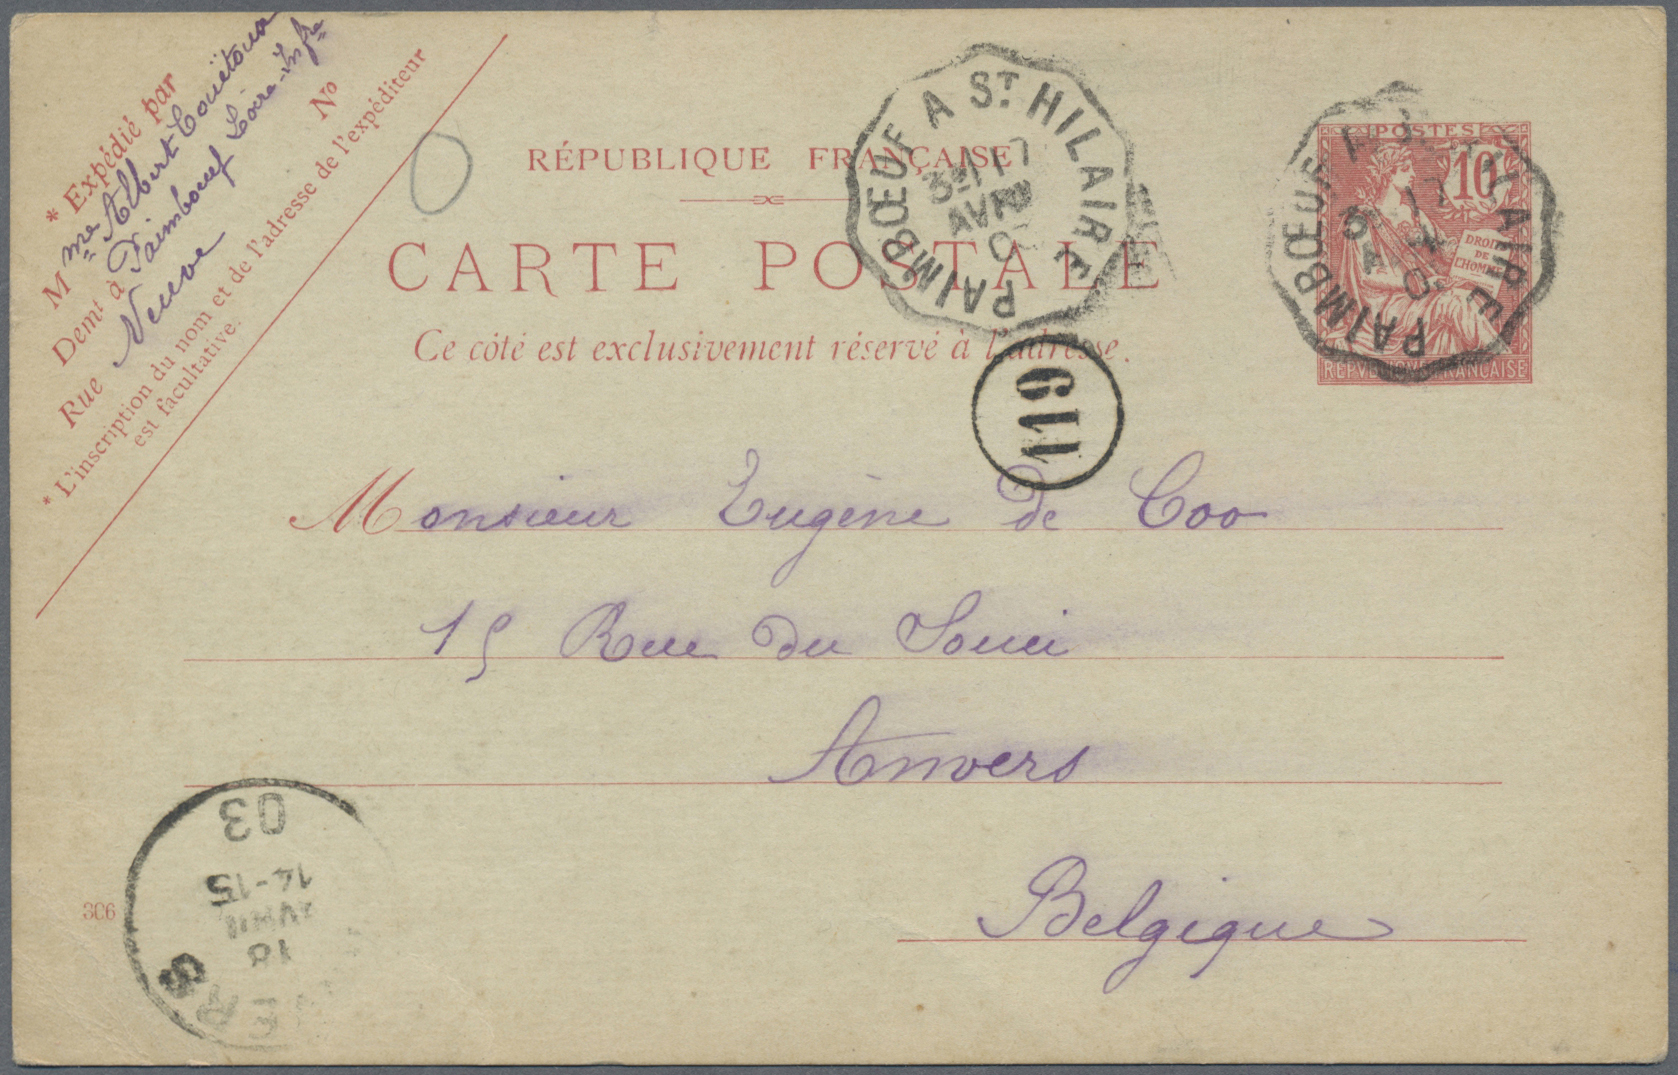 * Expédié par
Mme Albert Couëtoux
Demt à Paimboeuf Loire-Infre
Rue Neuve No
* L'inscription du nom et de l'adresse de l'expéditeur
est facultative.
RÉPUBLIQUE FRANÇAISE
CARTE POSTALE
Ce côté est exclusivement réservé à l'adresse.
PAIMBŒUF A ST HILAIRE
3E 17
AVRIL
0
POSTES
10
DROITS
DE
L'HOMME
REPVBLIQVE FRANÇAISE
PAIMBŒUF HILAIRE
119
Monsieur Eugène de Coo
15 Rue du Souci
Anvers
Belgique
306
03
14-15
AVRIL
18
VERS